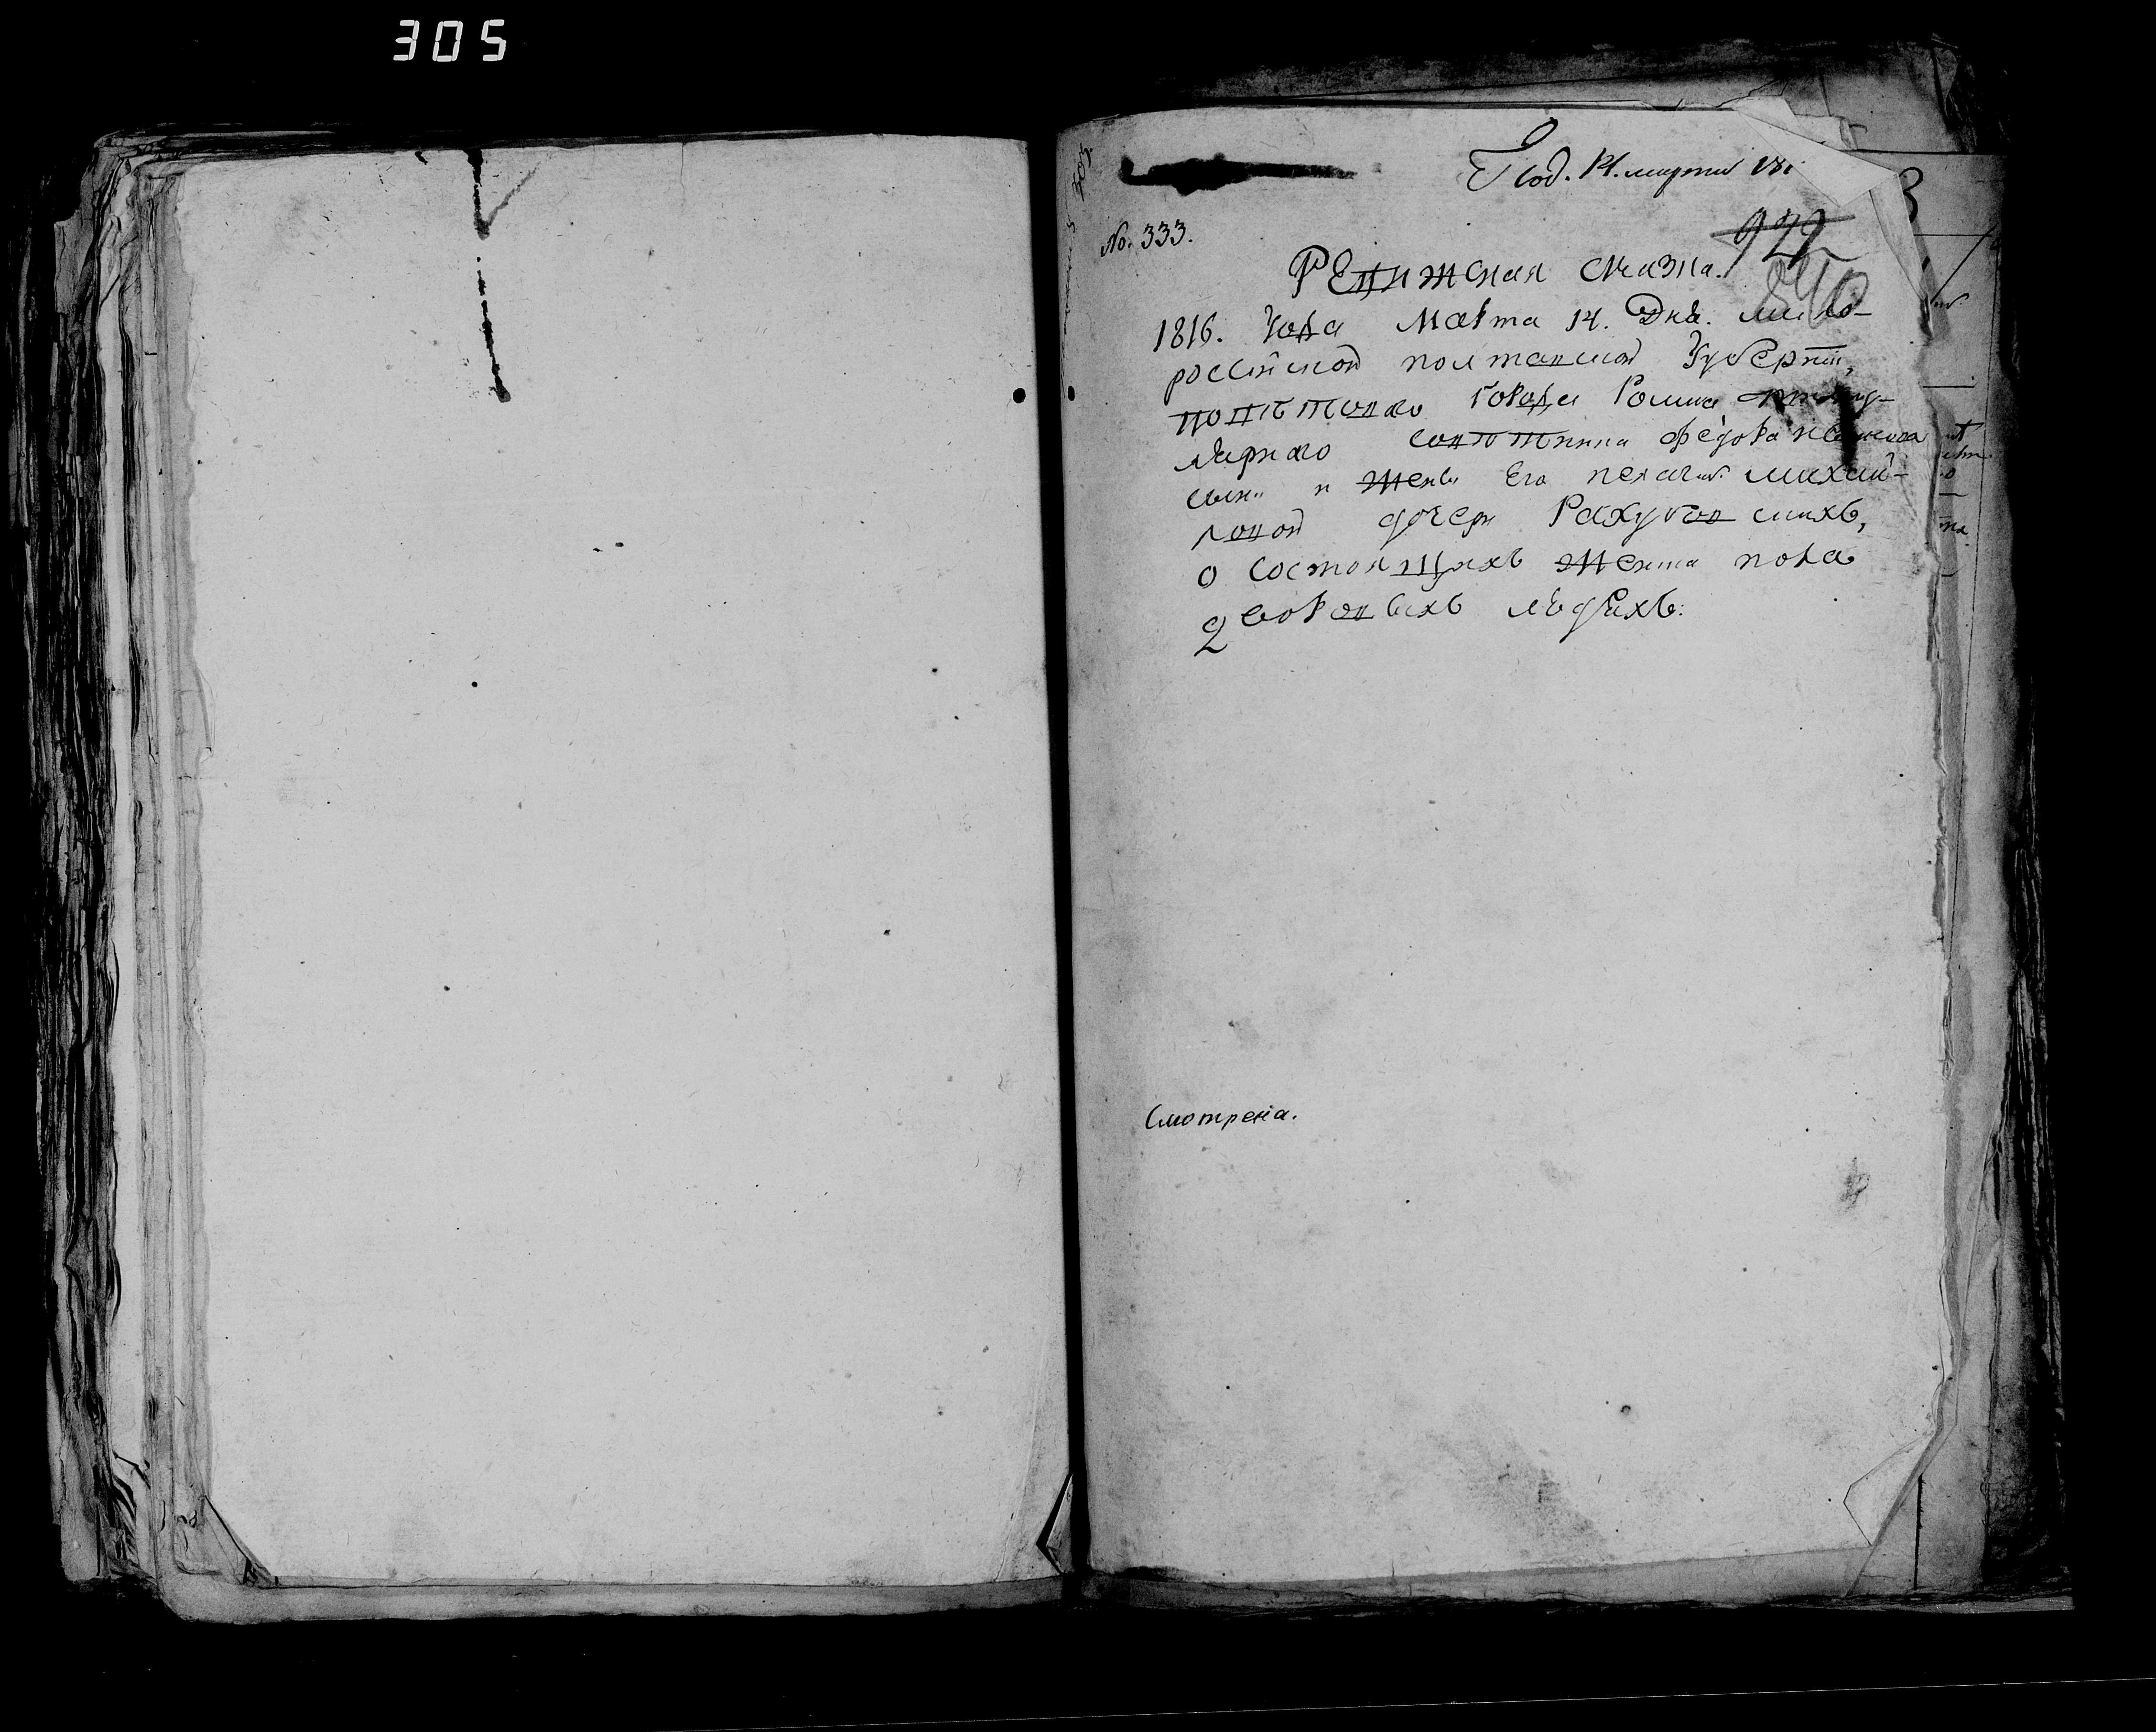 305
Под. 14. марта 181
No. 333.
922
840
РЕвижская сказка.
1816. Года Марта 14. Дня. мало-
россійской полтавской Губерніи,
повѣтоваго города Ромна
лярнаго совѣтника Федора Иванова
сына и жены Его пелагѣи михай-
ловой дочери Рахубовскихъ,
о состоящихъ женска пола
дворовыхъ людяхъ:
Смотрена.